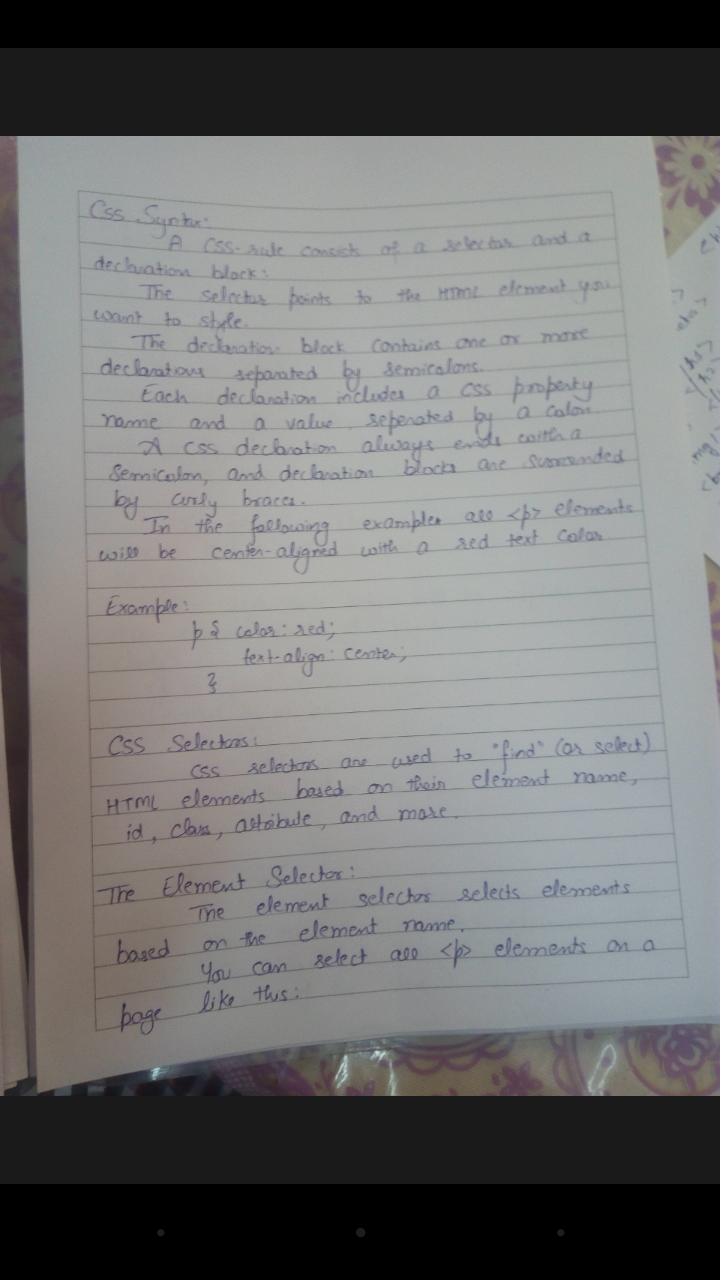 CSS Syntax:
A CSS-rule consists of a selector and a
declaration block:
The selector points to the HTML element you
want to style.
The declaration block contains one or more
declarations separated by semicolons.
Each declaration includes a CSS property
name and a value, seperated by a colon
A CSS declaration always ends with a
semicolon, and declaration blocks are surrounded
by curly braces.
In the following examples all <p> elements
will be center-aligned with a red text color
Example:
p { color: red;
text-align: center;
}
CSS Selectors:
CSS selectors are used to "find" (or select)
HTML elements based on their element name,
id, class, attribute, and more.
The Element Selector:
The element selector selects elements
based on the element name.
You can select all <p> elements on a
page like this: